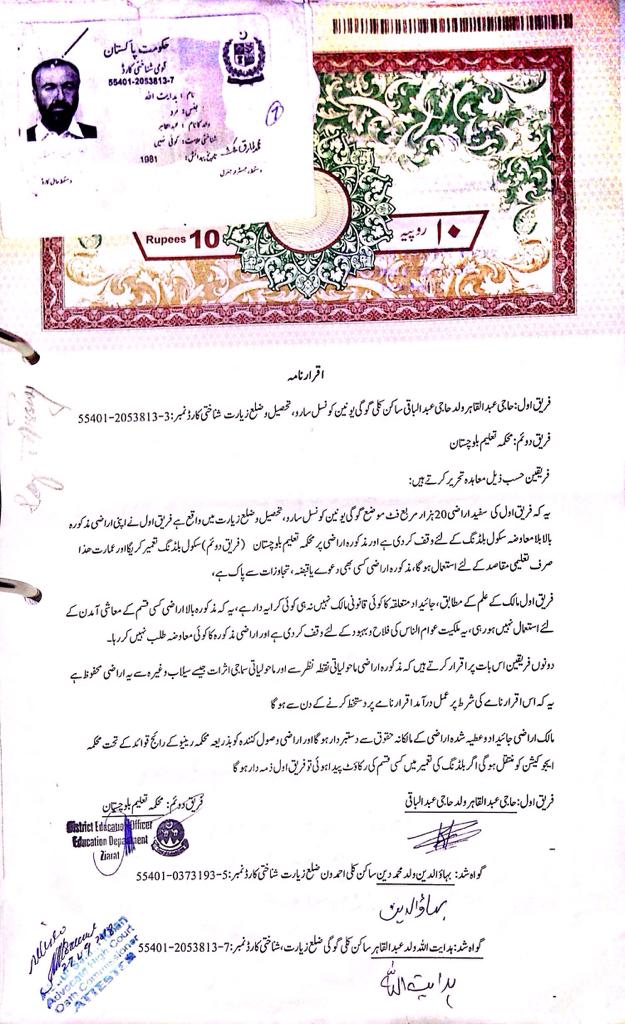 حکومت پاکستان
قومی شناختی کارڈ
55401-2053813-7
نام: ہدایت اللہ
جنس: مرد
والد کا نام: عبدالقاہر
شناختی علامت: کوئی نہیں
تاریخ پیدائش: 1981
Rupees 10
۱۰ روپیہ
اقرارنامہ
فریق اول: حاجی عبدالقاہر ولد حاجی عبدالباقی ساکن کلی گوگی یونین کونسل سارو، تحصیل و ضلع زیارت شناختی کارڈ نمبر: 3-2053813-55401
فریق دوئم: محکمہ تعلیم بلوچستان
فریقین حسب ذیل معاہدہ تحریر کرتے ہیں:
یہ کہ فریق اول کی سفید اراضی 20 ہزار مربع فٹ موضع گوگی یونین کونسل سارو، تحصیل و ضلع زیارت میں واقع ہے فریق اول نے اپنی اراضی مذکورہ
بالا بلا معاوضہ سکول بلڈنگ کے لئے وقف کردی ہے اور مذکورہ اراضی پر محکمہ تعلیم بلوچستان (فریق دوئم) سکول بلڈنگ تعمیر کریگا اور عمارت ھذا
صرف تعلیمی مقاصد کے لئے استعمال ہوگا، مذکورہ اراضی کسی بھی دعوے یا قبضہ، تجاوزات سے پاک ہے،
فریق اول مالک کے علم کے مطابق، جائیداد متعلقہ کا کوئی قانونی مالک نہیں نہ ہی کوئی کرایہ دار ہے، یہ کہ مذکورہ بالا اراضی کسی قسم کے معاشی آمدن کے
لئے استعمال نہیں ہورہی، یہ ملکیت عوام الناس کی فلاح و بہبود کے لئے وقف کردی ہے اور اراضی مذکورہ کا کوئی معاوضہ طلب نہیں کررہا۔
دونوں فریقین اس بات پر اقرار کرتے ہیں کہ مذکورہ اراضی ماحولیاتی نقطہ نظر سے اور ماحولیاتی سماجی اثرات جیسے سیلاب وغیرہ سے یہ اراضی محفوظ ہے
یہ کہ اس اقرارنامے کی شرط پر عمل درآمد اقرارنامے پر دستخط کرنے کے دن سے ہوگا
مالک اراضی جائیداد و عطیہ شدہ اراضی کے مالکانہ حقوق سے دستبردار ہوگا اور اراضی وصول کنندہ کو بذریعہ محکمہ ریونیو کے رائج قوائد کے تحت محکمہ
ایجوکیشن کو منتقل ہوگی اگر بلڈنگ کی تعمیر میں کسی قسم کی رکاؤٹ پیدا ہوئی تو فریق اول ذمہ دار ہوگا
فریق اول: حاجی عبدالقاہر ولد حاجی عبدالباقی
فریق دوئم: محکمہ تعلیم بلوچستان
District Education Officer
Education Department
Ziarat
گواہ شد: بہاؤالدین ولد محمد دین ساکن کلی احمدون ضلع زیارت شناختی کارڈ نمبر: 5-0373193-55401
بہاؤالدین
گواہ شد: ہدایت اللہ ولد عبدالقاہر ساکن کلی گوگی ضلع زیارت، شناختی کارڈ نمبر: 7-2053813-55401
ہدایت اللہ
Advocate High Court
Oath Commissioner
ATTESTED